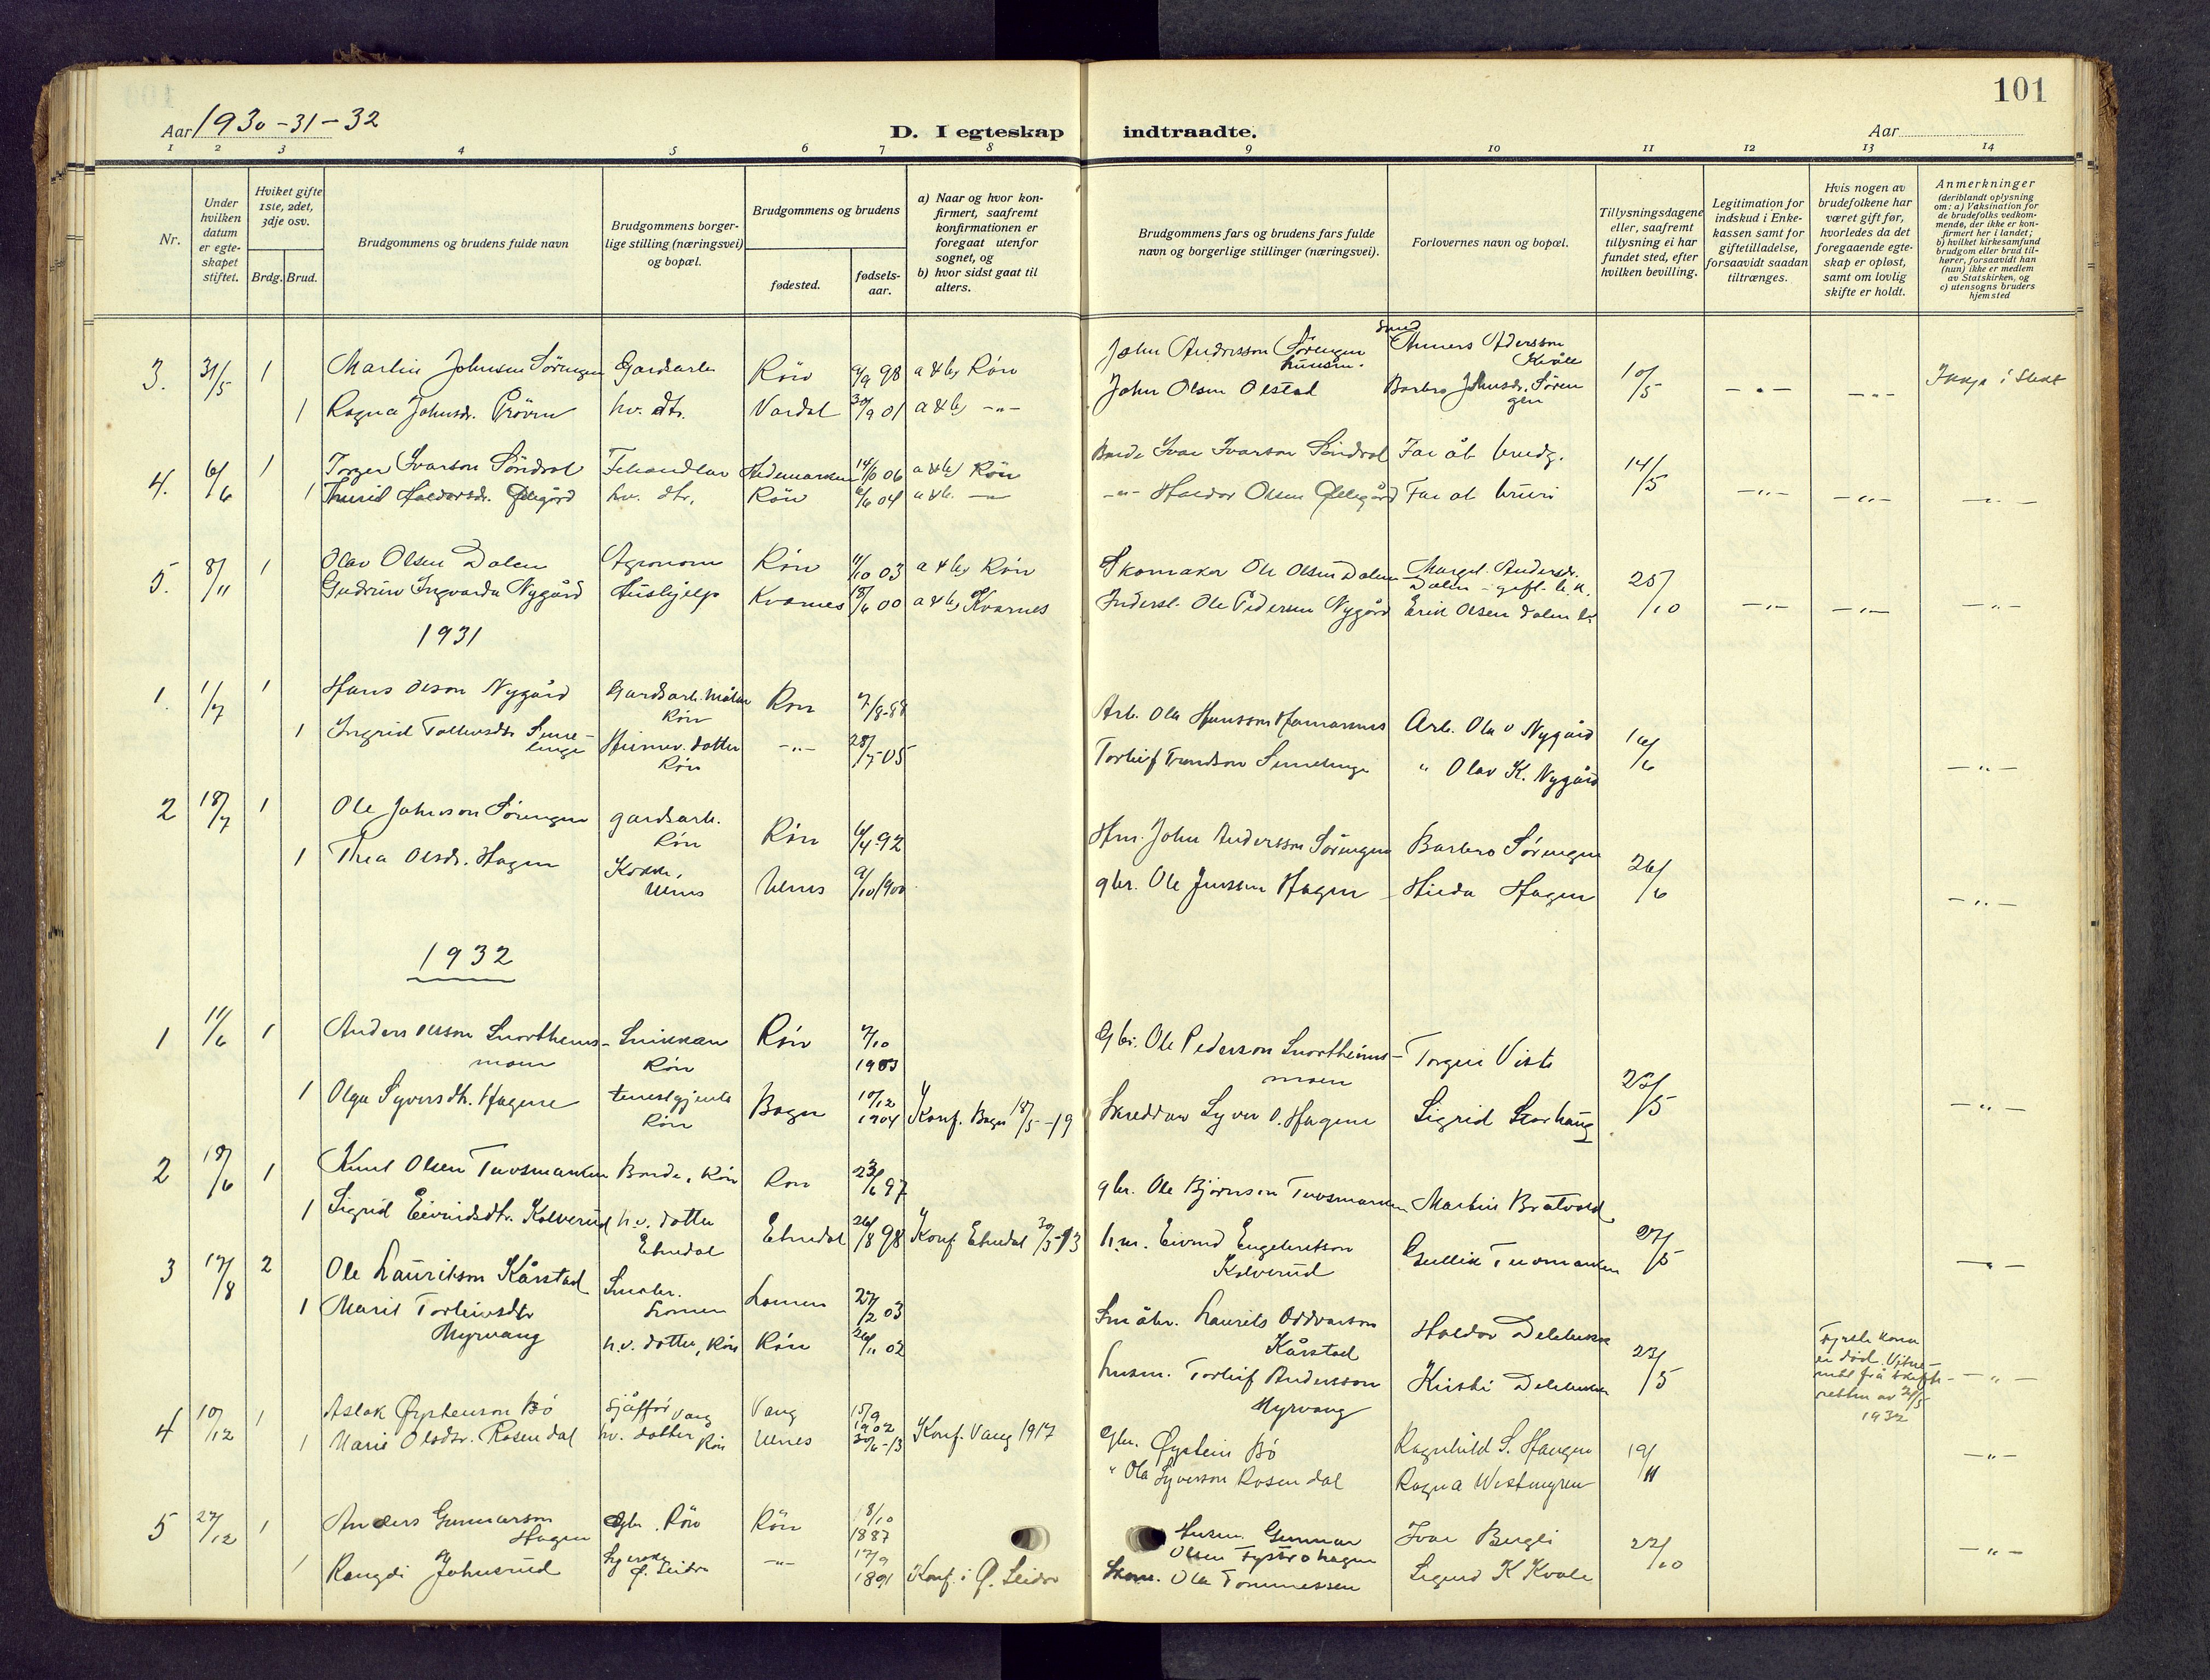 101
Aar 1930-31-32
D. I egteskap indtraadte.
Aar
1 2 3 4 5 6 7 8 9 10 11 12 13 14
Nr.
Under hvilken datum er egteskapet stiftet.
Hviket gifte 1ste, 2det, 3dje osv.
Brdg. Brud.
Brudgommens og brudens fulde navn
Brudgommens borgerlige stilling (næringsvei) og bopæl.
Brudgommens og brudens
fødested.
fødselsaar.
a) Naar og hvor konfirmert, saafremt konfirmationen er foregaat utenfor sognet, og
b) hvor sidst gaat til alters.
Brudgommens fars og brudens fars fulde navn og borgerlige stillinger (næringsvei).
Forlovernes navn og bopæl.
Tillysningsdagene eller, saafremt tillysning ei har fundet sted, efter hvilken bevilling.
Legitimation for indskud i Enkekassen samt for giftetilladelse, forsaavidt saadan tiltrænges.
Hvis nogen av brudefolkene har været gift før, hvorledes da det foregaaende egteskap er opløst, samt om lovlig skifte er holdt.
Anmerkninger
(deriblandt oplysning om: a) Vaksination for de brudefolks vedkommende, der ikke er konfirmert her i landet; b) hvilket kirkesamfund brudgom eller brud tilhører, forsaavidt han (hun) ikke er medlem av Statskirken, og c) utensogns bruders hjemsted
3. 31/5 1 Martin Johnsen Sörengen Gardsarb. Røn 4/9 98 a & b) Røn John Andersson Sörengen husm. Kvåle 10/5 - " - - " - Ikkje i slekt
1 Ragna Johnsdr. Pröven hv. dtr. Vardal 30/9 01 a & b) - " - John Olsen Olstad Barbro Johnsdr. Sörengen
4. 6/6 1 Torger Ivarson Söndrol Hedemarken 14/10 06 a & b) Røn Bonde Ivar Ivarson Söndrol Far åt brudg. 14/5 - " - - " - - " -
1 Thurid Haldorsdr. hv. dtr. Røn 4/6 04 a & b. - " - - " - Haldor Olsen Far åt bruri
5. 8/11 1 Olav Olsen Dalen Agronom Røn 4/10 03 a & b) Røn Skomaker Ole Olsen Dalen Marget Andersdr. Dalen 25/10 - " - - " - - " -
Gudrun Ingvarda Nygård Hushjelp Kvarnes 18/6 00 a & b) Kvarnes Ole Pedersen Nygård Erik Olsen Dalen
1931
1. 11/7 1 Hans Olson Nygård Gardsarb. målar Røn Røn 7/8-88 Arb. Ola Hansson Arb. Ola O Nygård 14/6 - " -
1 Ingrid Heimev. dotter Røn - " - 28/7-05 Torleif Trondson " Olav K. Nygård
2 18/7 1 Ole Johnson Sörengen gardsarb. Røn Røn 4/4-92 Hm. John Andersson Sörengen Barbro Sörengen 26/6 - " -
1 Thea Olsdr. Hagen Kokke, Ulnes Ulnes 9/10 1900 gbr. Ole Jensen Hagen Hilda Hagen
1932
1 11/6 1 Anders Olsson Snortheimsmoen Snikkar Røn Røn 7/10 1903 Gbr. Ole Pederson Snortheimsmoen Torgeir Viste 28/5 - " -
1 Olga Syversdtr. Hagene tenestgjente Røn Bagn 10/12 1904 Konf. Bagn 18/5-19 Skreddar Syver O. Hagene Sigrid Storhaug
2 18/6 1 Knut Olsen Tuvsmarken Bonde, Røn Røn 23/6 97 gbr. Ole Björnson Tuvsmarken Martin Bratvold 27/5 - " -
1 Sigrid Eivindsdtr. Kolverud h.v. dotter Etnedal Etnedal 26/8 98 Konf. Etnedal 30/3-13 h.m. Eivind Engebretson Kolverud Gullik Tuvsmarken
3 17/8 2 Ole Lauritson Kårstad Småbr. Lomen Lomen 27/2 03 Småbr. Laurits Oddvarson Kårstad Haldor 23/5 Fyrste kona er död. Vitnemål frå skifteretten av 21/5 1932 - " -
1 Marit Torleivsdtr Myrvang h.v. dotter, Røn Røn 26/11 02 husm. Torleif Andersson Myrvang Kirsti
4 10/12 1 Aslak Øystenson Bö Sjåffør Vang Vang 15/9 1902 Konf. Vang 1917 Gbr. Øystein Bö Ragnhild S. Haugen 19/11 - " -
1 Marie Olsdtr. Rosendal hv. dotter Røn Ulnes 30/6-13 " Ola Syverson Rosendal Ragna Westmyren
5 27/12 1 Anders Gunnarson Hagen Gbr. Røn Røn 18/10 1887 Husm. Gunnar Olsen Ivar Bergli 22/10 - " -
1 Rangdi Johnsrud Ø. Slidre - " - 17/9 1891 Konf. i Ø. Slidre Skom. Ola Tommessen Sigurd K Kvale